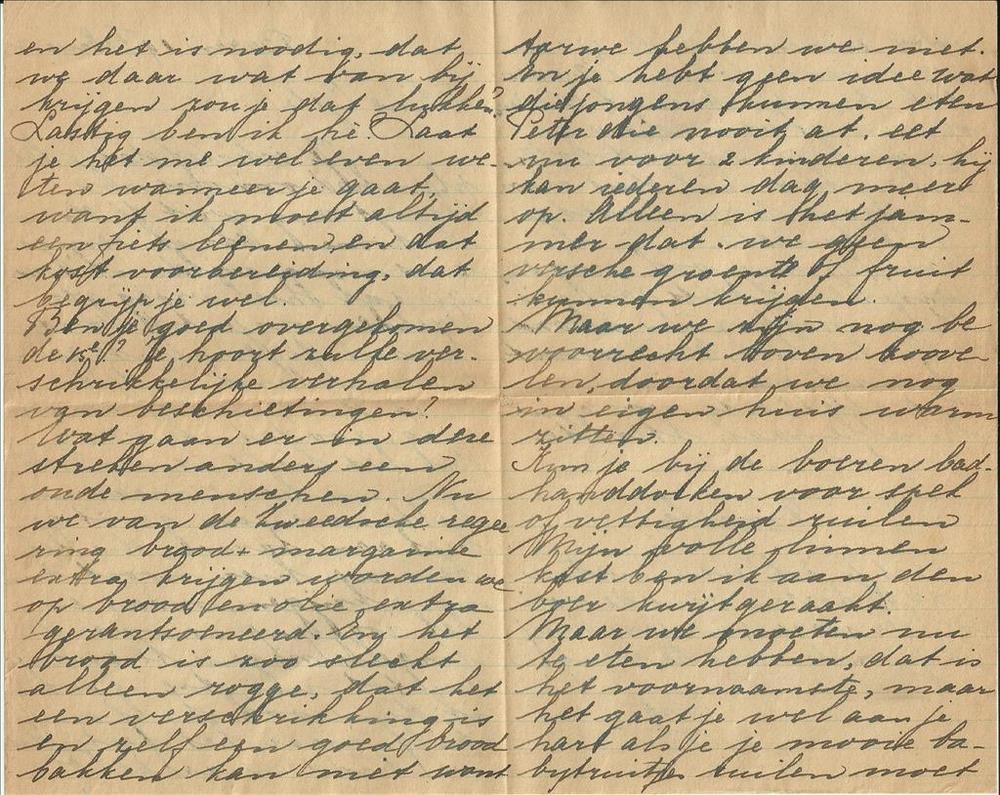 en het is noodig, dat
we daar wat van bij
krijgen zou je dat lukken?
Lastig ben ik hè. Laat
je het me wel even we-
ten wanneer je gaat,
want ik moet altijd
een fiets leenen, en dat
kost voorbereiding, dat
begrijp je wel.
Ben je goed overgekomen
de 15e? Je hoort zulke ver-
schrikkelijke verhalen
van beschietingen?
Wat gaan er in deze
streken anders een
oude menschen. Nu
we van de Zweedsche regee
ring brood + margarine
extra krijgen worden we
op brood en olie extra
gerantsoeneerd. En het
brood is zoo slecht
alleen rogge, dat het
een verschrikking is
en zelf een goed brood
bakken kan niet want
tarwe hebben we niet.
En je hebt geen idee wat
die jongens kunnen eten
Peter die nooit at, eet
nu voor 2 kinderen, hij
kan iederen dag meer
op. Alleen is het jam-
mer dat we geen
versche groente of fruit
kunnen krijgen.
Maar we zijn nog be
voorrecht boven zoove-
len, doordat we nog
in eigen huis warm
zitten.
Kun je bij de boeren bad-
handdoeken voor spek
of vettigheid ruilen
Mijn volle linnen
kast ben ik aan den
boer kwijtgeraakt.
Maar we moeten nu
te eten hebben, dat is
het voornaamste, maar
het gaat je wel aan je
hart als je je mooie ba-
bytruitjes ruilen moet